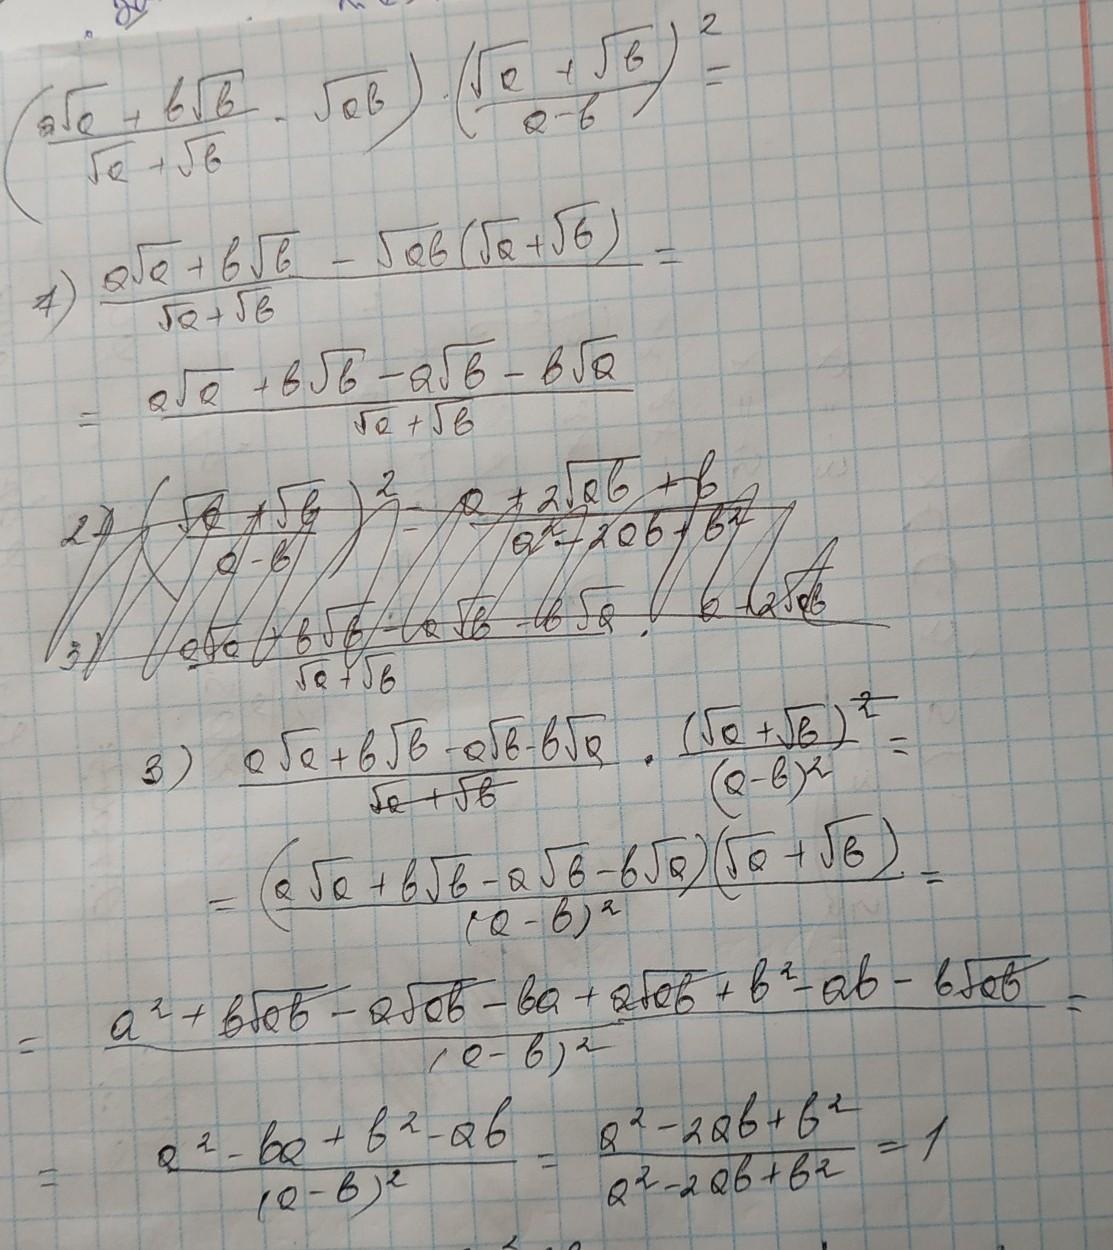 (a√a + b√b / √a + √b - √ab) · (√a + √b / a-b)² =
1) a√a + b√b - √ab(√a + √b) / √a + √b =
= a√a + b√b - a√b - b√a / √a + √b
2) (√a + √b / a-b)² = a + 2√ab + b / a² - 2ab + b²
3) a√a + b√b - a√b - b√a / √a + √b · a + 2√ab
3) a√a + b√b - a√b - b√a / √a + √b · (√a + √b)² / (a-b)² =
= (a√a + b√b - a√b - b√a)(√a + √b) / (a-b)² =
= a² + b√ab - a√ab - ba + a√ab + b² - ab - b√ab / (a-b)² =
= a² - ba + b² - ab / (a-b)² = a² - 2ab + b² / a² - 2ab + b² = 1